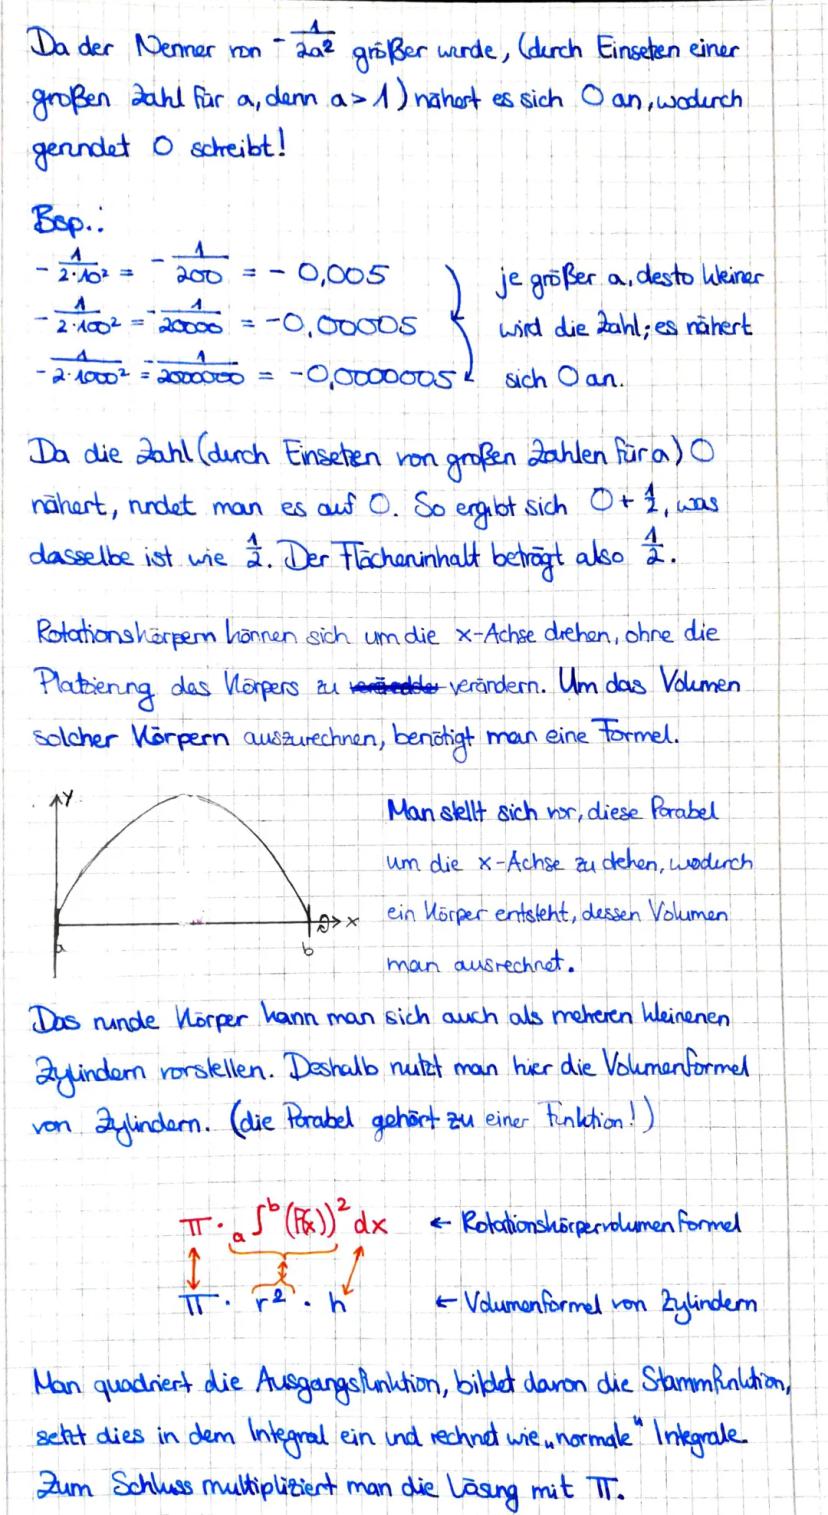 Da der Nenner von -1/2a² größer wurde, (durch Einsetzen einer
großen Zahl für a, denn a > 1) nähert es sich 0 an, wodurch
gerundet 0 schreibt!
Bsp.:
- 1/2·10² = - 1/200 = - 0,005
- 1/2·100² = - 1/20000 = -0,00005
- 1/2·1000² = - 1/2000000 = -0,0000005
je größer a, desto kleiner
wird die Zahl; es nähert
sich 0 an.
Da die Zahl (durch Einsetzen von großen Zahlen für a) 0
nähert, rundet man es auf 0. So ergibt sich 0 + 1/2, was
dasselbe ist wie 1/2. Der Flächeninhalt beträgt also 1/2.
Rotationskörpern können sich um die x-Achse drehen, ohne die
Platzierung des Körpers zu verändern. Um das Volumen
solcher Körpern auszurechnen, benötigt man eine Formel.
y
x
a
b
Man stellt sich vor, diese Parabel
um die x-Achse zu dehen, wodurch
ein Körper entsteht, dessen Volumen
man ausrechnet.
Das runde Körper kann man sich auch als meheren kleinenen
Zylindern vorstellen. Deshalb nutzt man hier die Volumenformel
von Zylindern. (die Parabel gehört zu einer Funktion!)
π · a∫b (f(x))² dx ← Rotationskörpervolumenformel
π · r² · h ← Volumenformel von Zylindern
Man quadriert die Ausgangsfunktion, bildet davon die Stammfunktion,
setzt dies in dem Integral ein und rechnet wie „normale“ Integrale.
Zum Schluss multipliziert man die Lösung mit π.